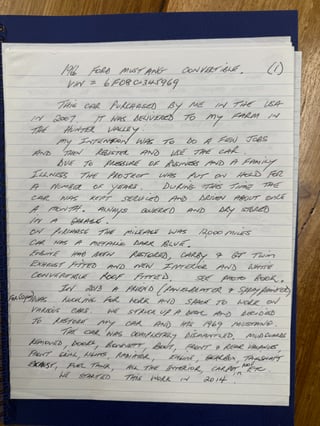 1966 FORD MUSTANG CONVERTIBLE. (1)
VIN = 6F08C345969
THIS CAR PURCHASED BY ME IN THE USA
IN 2007. IT WAS DELIVERED TO MY FARM IN
THE HUNTER VALLEY.
MY INTENTION WAS TO DO A FEW JOBS
AND THEN REGISTER AND USE THE CAR
DUE TO PRESSURE OF BUSINESS AND A FAMILY
ILLNESS THE PROJECT WAS PUT ON HOLD FOR
A NUMBER OF YEARS. DURING THIS TIME THE
CAR WAS KEPT SERVICED AND DRIVEN ABOUT ONCE
A MONTH. ALWAYS COVERED AND DRY STORED
IN A GARAGE.
ON PURCHASE THE MILEAGE WAS MILES
CAR WAS A METALIC DARK BLUE.
FRONT HAS BEEN RESTORED, CARBY & GT TWIN
EXHAUST FITTED AND NEW INTERIOR AND WHITE
CONVERTIBLE ROOF FITTED. SEE PHOTO BOOK.
IN 2013 A FRIEND (PANELBEATER & SPRAY PAINTER)
WAS LOOKING FOR WORK AND SPACE TO WORK ON
VARIOUS CARS. WE STRUCK UP A DEAL AND DECIDED
TO RESTORE MY CAR AND HIS 1969 MUSTANG.
THE CAR WAS COMPLETELY DISMANTLED, MUDGUARDS
REMOVED, DOORS, BONNETT, BOOT, FRONT & REAR VALANCES
FRONT GRILL, LIGHTS, RADIATOR, ENGINE, GEARBOX, TAILSHAFT
EXHAUST, FUEL TANK, ALL THE INTERIOR, CARPET ETC
WE STARTED THIS WORK IN 2014.